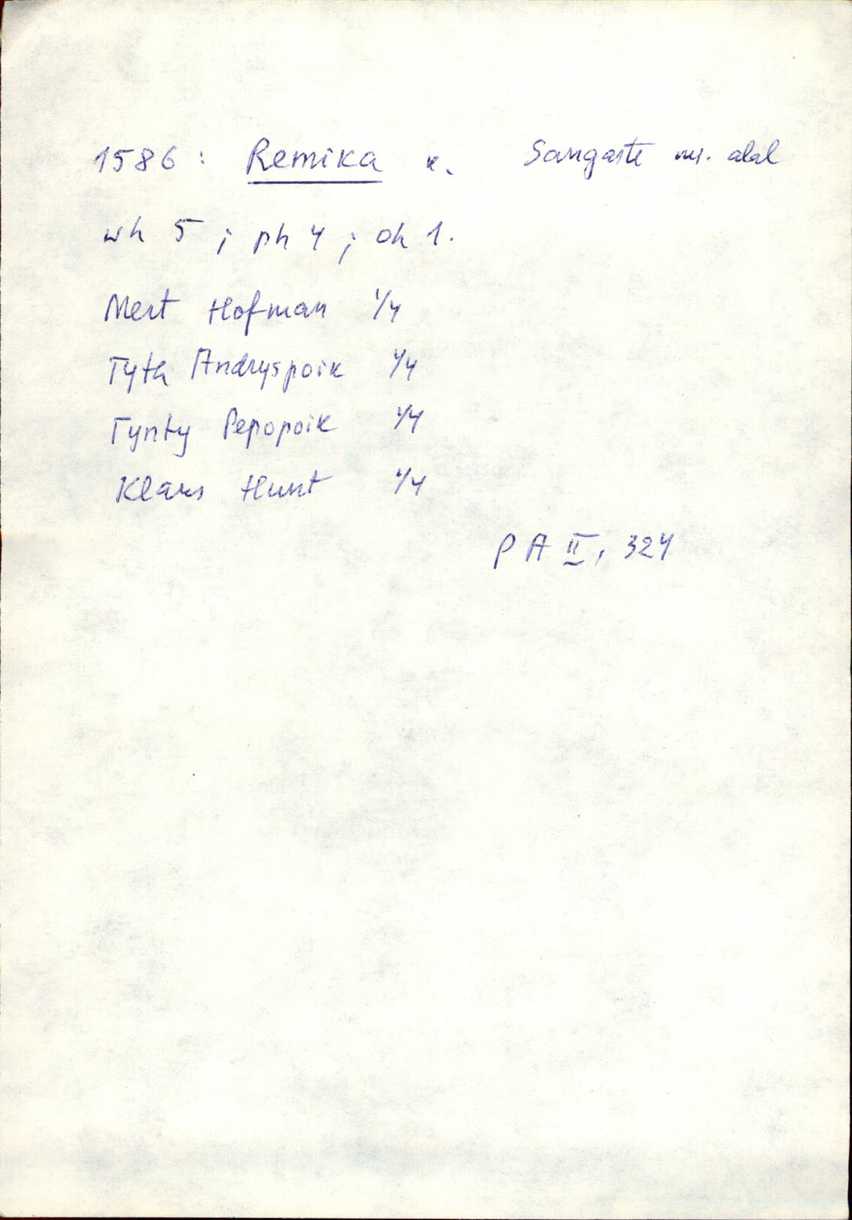 1586: Remika k. Sangaste ms. alal
wh 5; ph 4; oh 1.
Mert Hofman 1/4
Tyth Andryspoik 1/4
Tynty Pepopoik 1/4
Klaus Hunt 1/4
PA II, 324